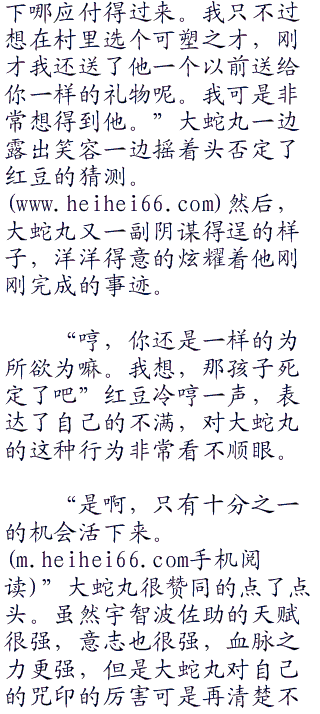 下哪应付得过来。我只不过
想在村里选个可塑之才，刚
才我还送了他一个以前送给
你一样的礼物呢。我可是非
常想得到他。”大蛇丸一边
露出笑容一边摇着头否定了
红豆的猜测。
(www.heihei66.com)然后，
大蛇丸又一副阴谋得逞的样
子，洋洋得意的炫耀着他刚
刚完成的事迹。
“哼，你还是一样的为
所欲为嘛。我想，那孩子死
定了吧”红豆冷哼一声，表
达了自己的不满，对大蛇丸
的这种行为非常看不顺眼。
“是啊，只有十分之一
的机会活下来。
(m.heihei66.com手机阅
读)”大蛇丸很赞同的点了点
头。虽然宇智波佐助的天赋
很强，意志也很强，血脉之
力更强，但是大蛇丸对自己
的咒印的厉害可是再清楚不